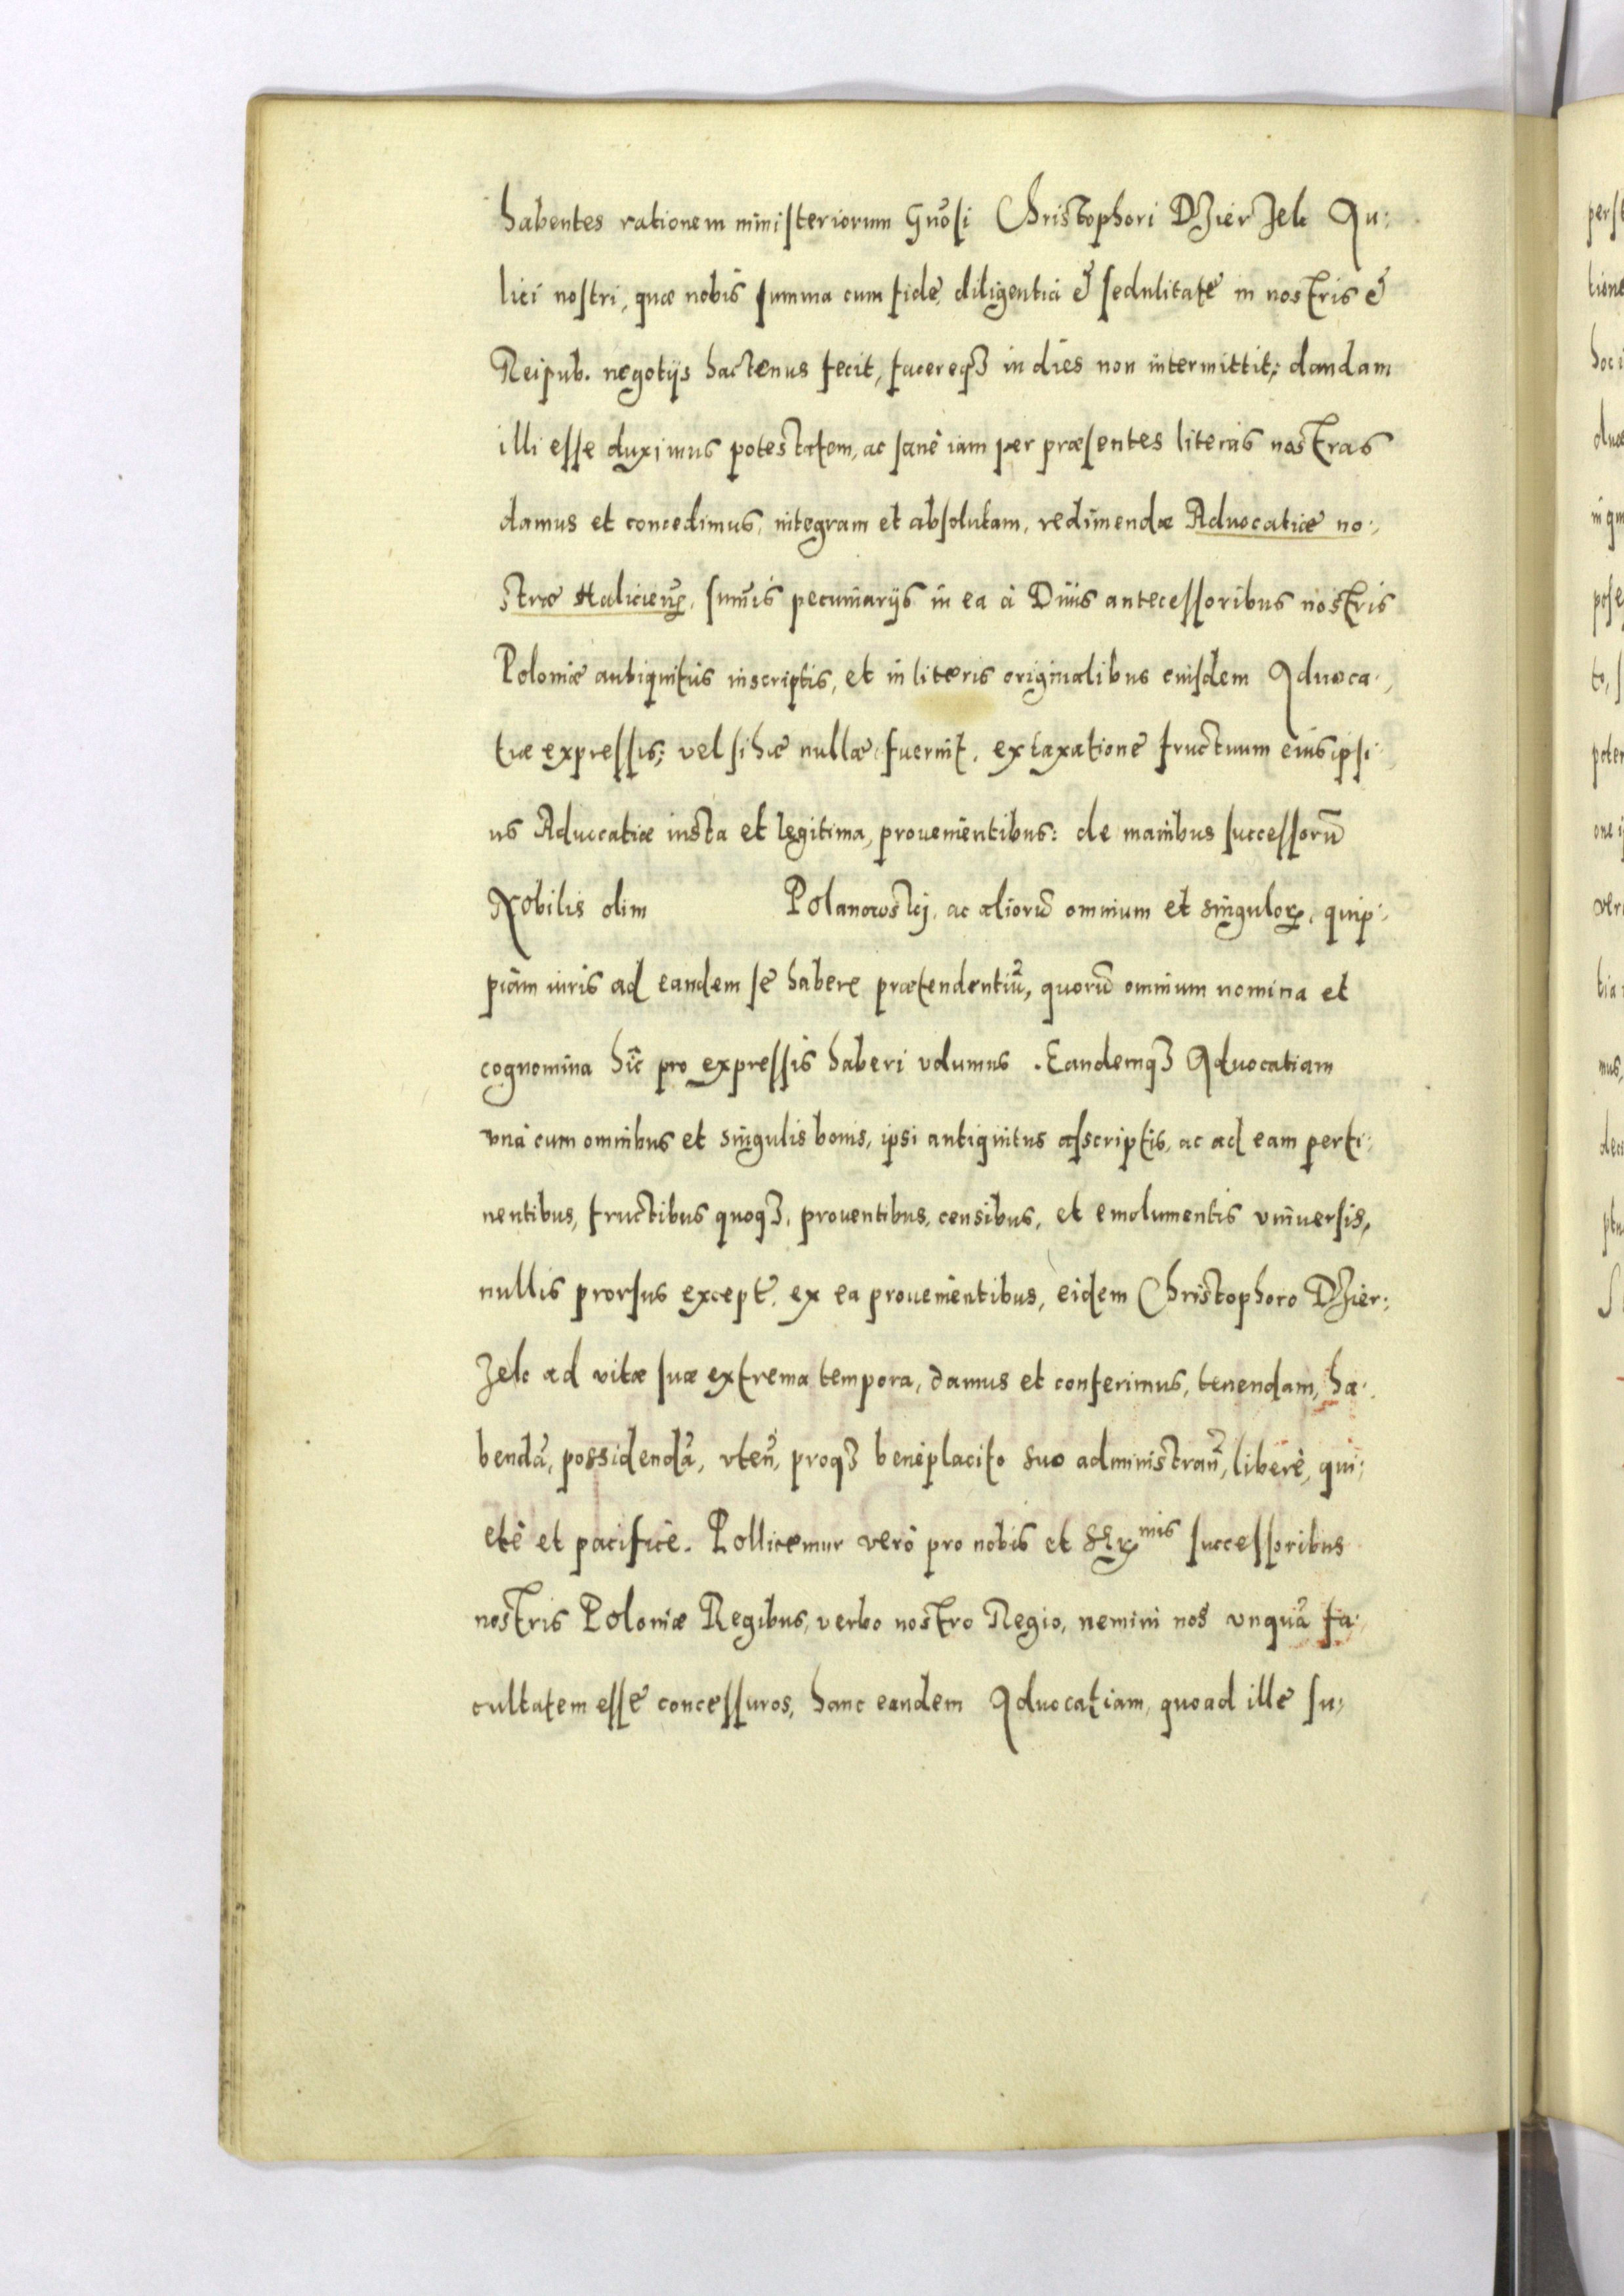 habentes rationem ministeriorum Gnõsi Christophori Dzierzek Au:
lici nostri, quæ nobis summa cum fide, diligentia & sedulitate in nostris &
Reipub. negotijs hactenus fecit, facereqꝫ in dies non intermittit; dandam
illi esse duximus potestatem, ac sanè iam per præsentes literas nostras
damus et concedimus, integram et absolutam, redimendæ Aduocatiæ no:
stræ Halicieñ, sum̃is pecuniarijs in ea à Diuis antecessoribus nostris
Poloniæ antiquitùs inscriptis, et in literis originalibus eiusdem Aduoca:
tiæ expressis; vel si hæ nullæ fuerint, ex taxatione fructuum eius ipsi:
us Aduocatiæ iusta et legitima, prouenientibus: de manibus successorũ
Nobilis olim Polanowskj, ac aliorũ omnium et singuloꝝ, quip:
piam iuris ad eandem se habere prætendentiũ, quorũ omnium nomina et
cognomina hîc pro expressis haberi volumus. Eandemqꝫ Aduocatiam
vnà cum omnibus et singulis bonis, ipsi antiquitus asscriptis, ac ad eam perti:
nentibus, fructibus quoqꝫ, prouentibus, censibus, et emolumentis vniuersis,
nullis prorsus except. ex ea prouenientibus, eidem Christophoro Dzier:
zek ad vitæ suæ extrema tempora, damus et conferimus, tenendam, ha:
bendã, possidendã, vteñ, proqꝫ beneplacito suo administrañ, liberè, qui:
etè et pacificè. Pollicemur verò pro nobis et Serᵐⁱˢ successoribus
nostris Poloniæ Regibus, verbo nostro Regio, nemini nos vnquã fa:
cultatem esse concessuros, hanc eandem Aduocatiam, quoad ille su: